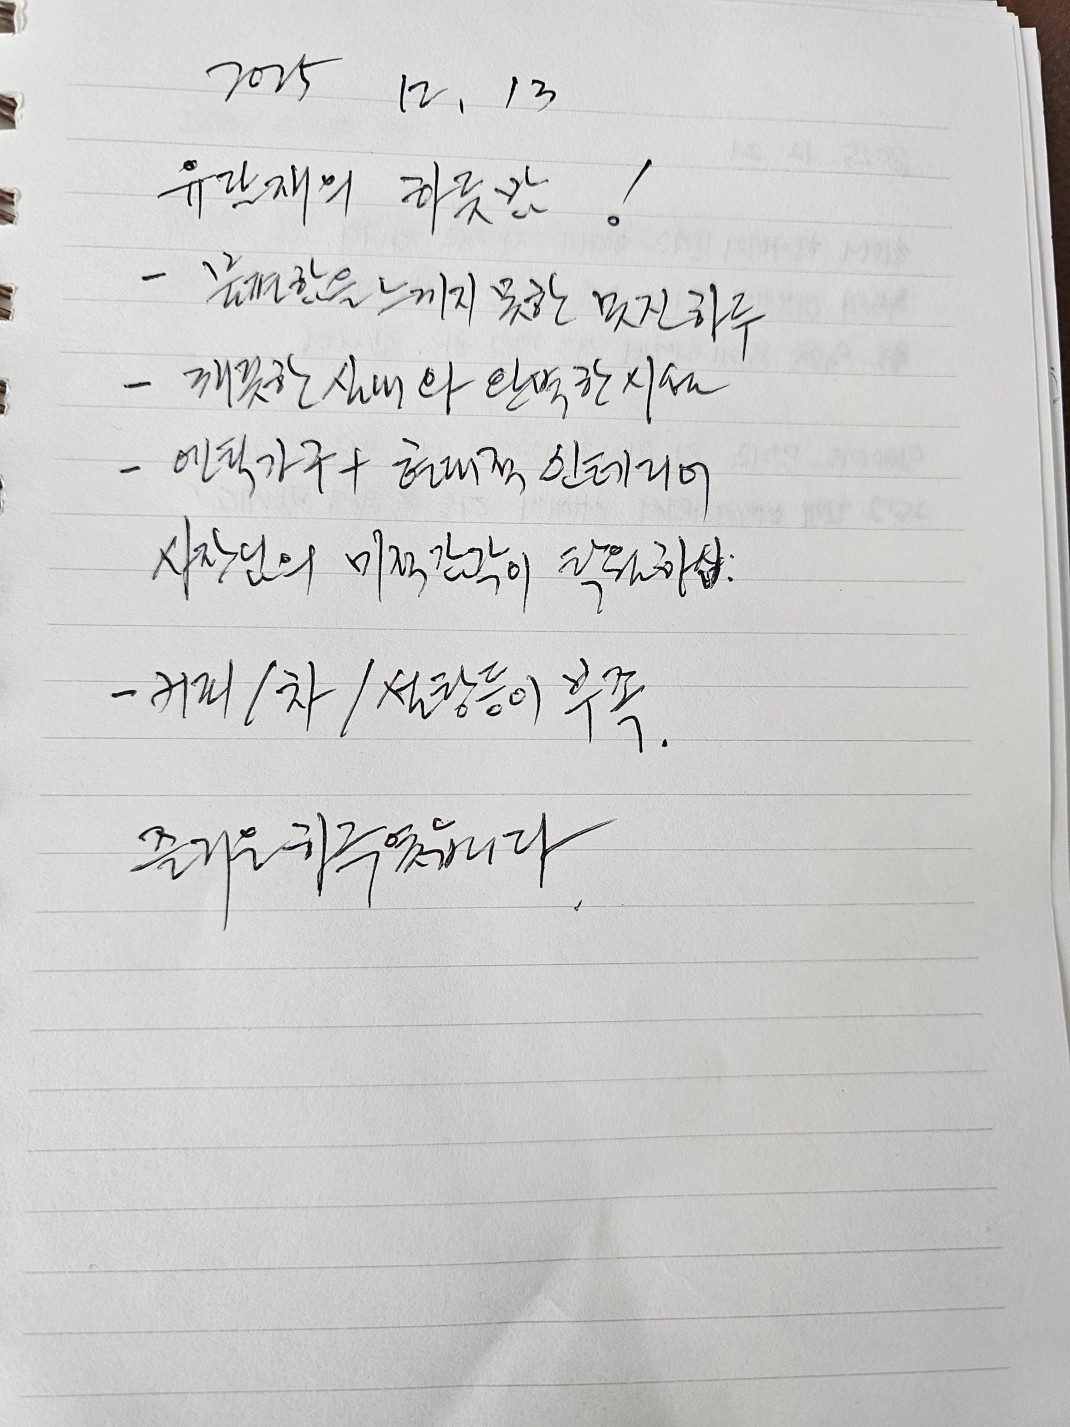 2025 12. 13
유란재의 하룻밤 !
- 불편한을 느끼지 못한 멋진 하루
- 깨끗한 실내와 완벽한 시설
- 엔틱가구 + 현대적 인테리어
사장님의 미적감각이 탁월하심.
- 커피 / 차 / 설탕등이 부족.
즐거운 하루였습니다.